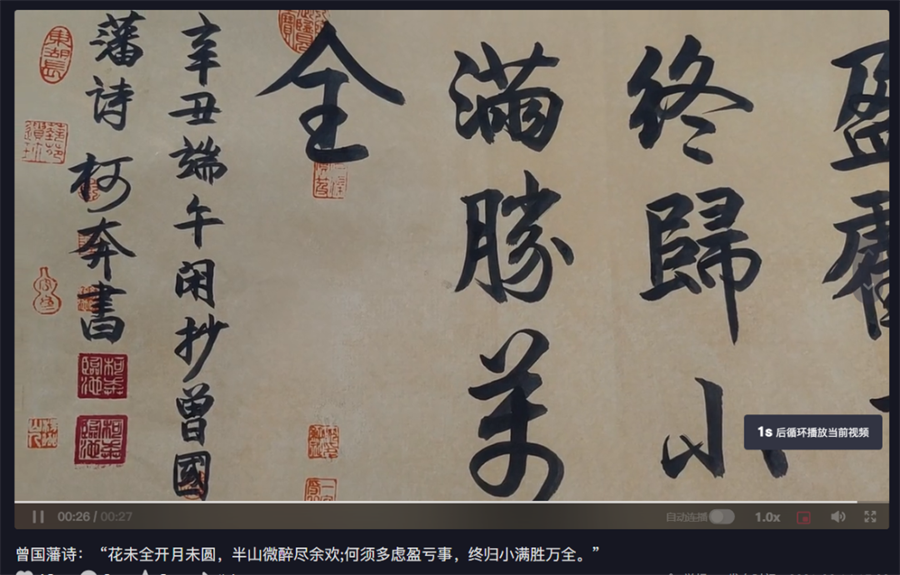 盈虧
終歸小
滿勝萬
全
辛丑端午闲抄曾國
藩诗 柯奔書
東湖長
柯奔臨池
柯奔臨池
1s 后循环播放当前视频
00:26 / 00:27
自动连播
1.0x
曾国藩诗：“花未全开月未圆，半山微醉尽余欢;何须多虑盈亏事，终归小满胜万全。”